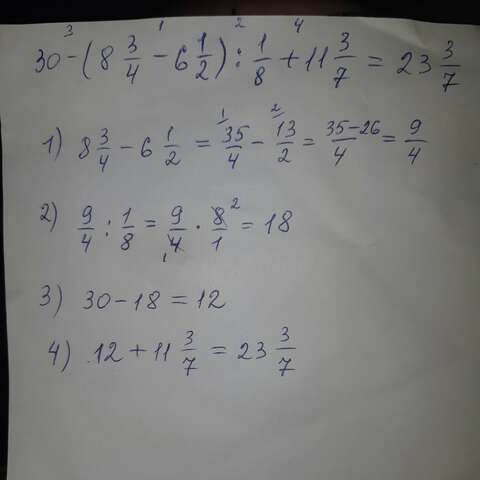 3 1 2 4
30 - (8 3/4 - 6 1/2) : 1/8 + 11 3/7 = 23 3/7
1) 8 3/4 - 6 1/2 = 35/4 - 13/2 = 35-26/4 = 9/4
2) 9/4 : 1/8 = 9/4 · 8/1 = 18
3) 30 - 18 = 12
4) 12 + 11 3/7 = 23 3/7